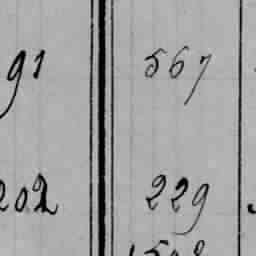 91 567
202 229